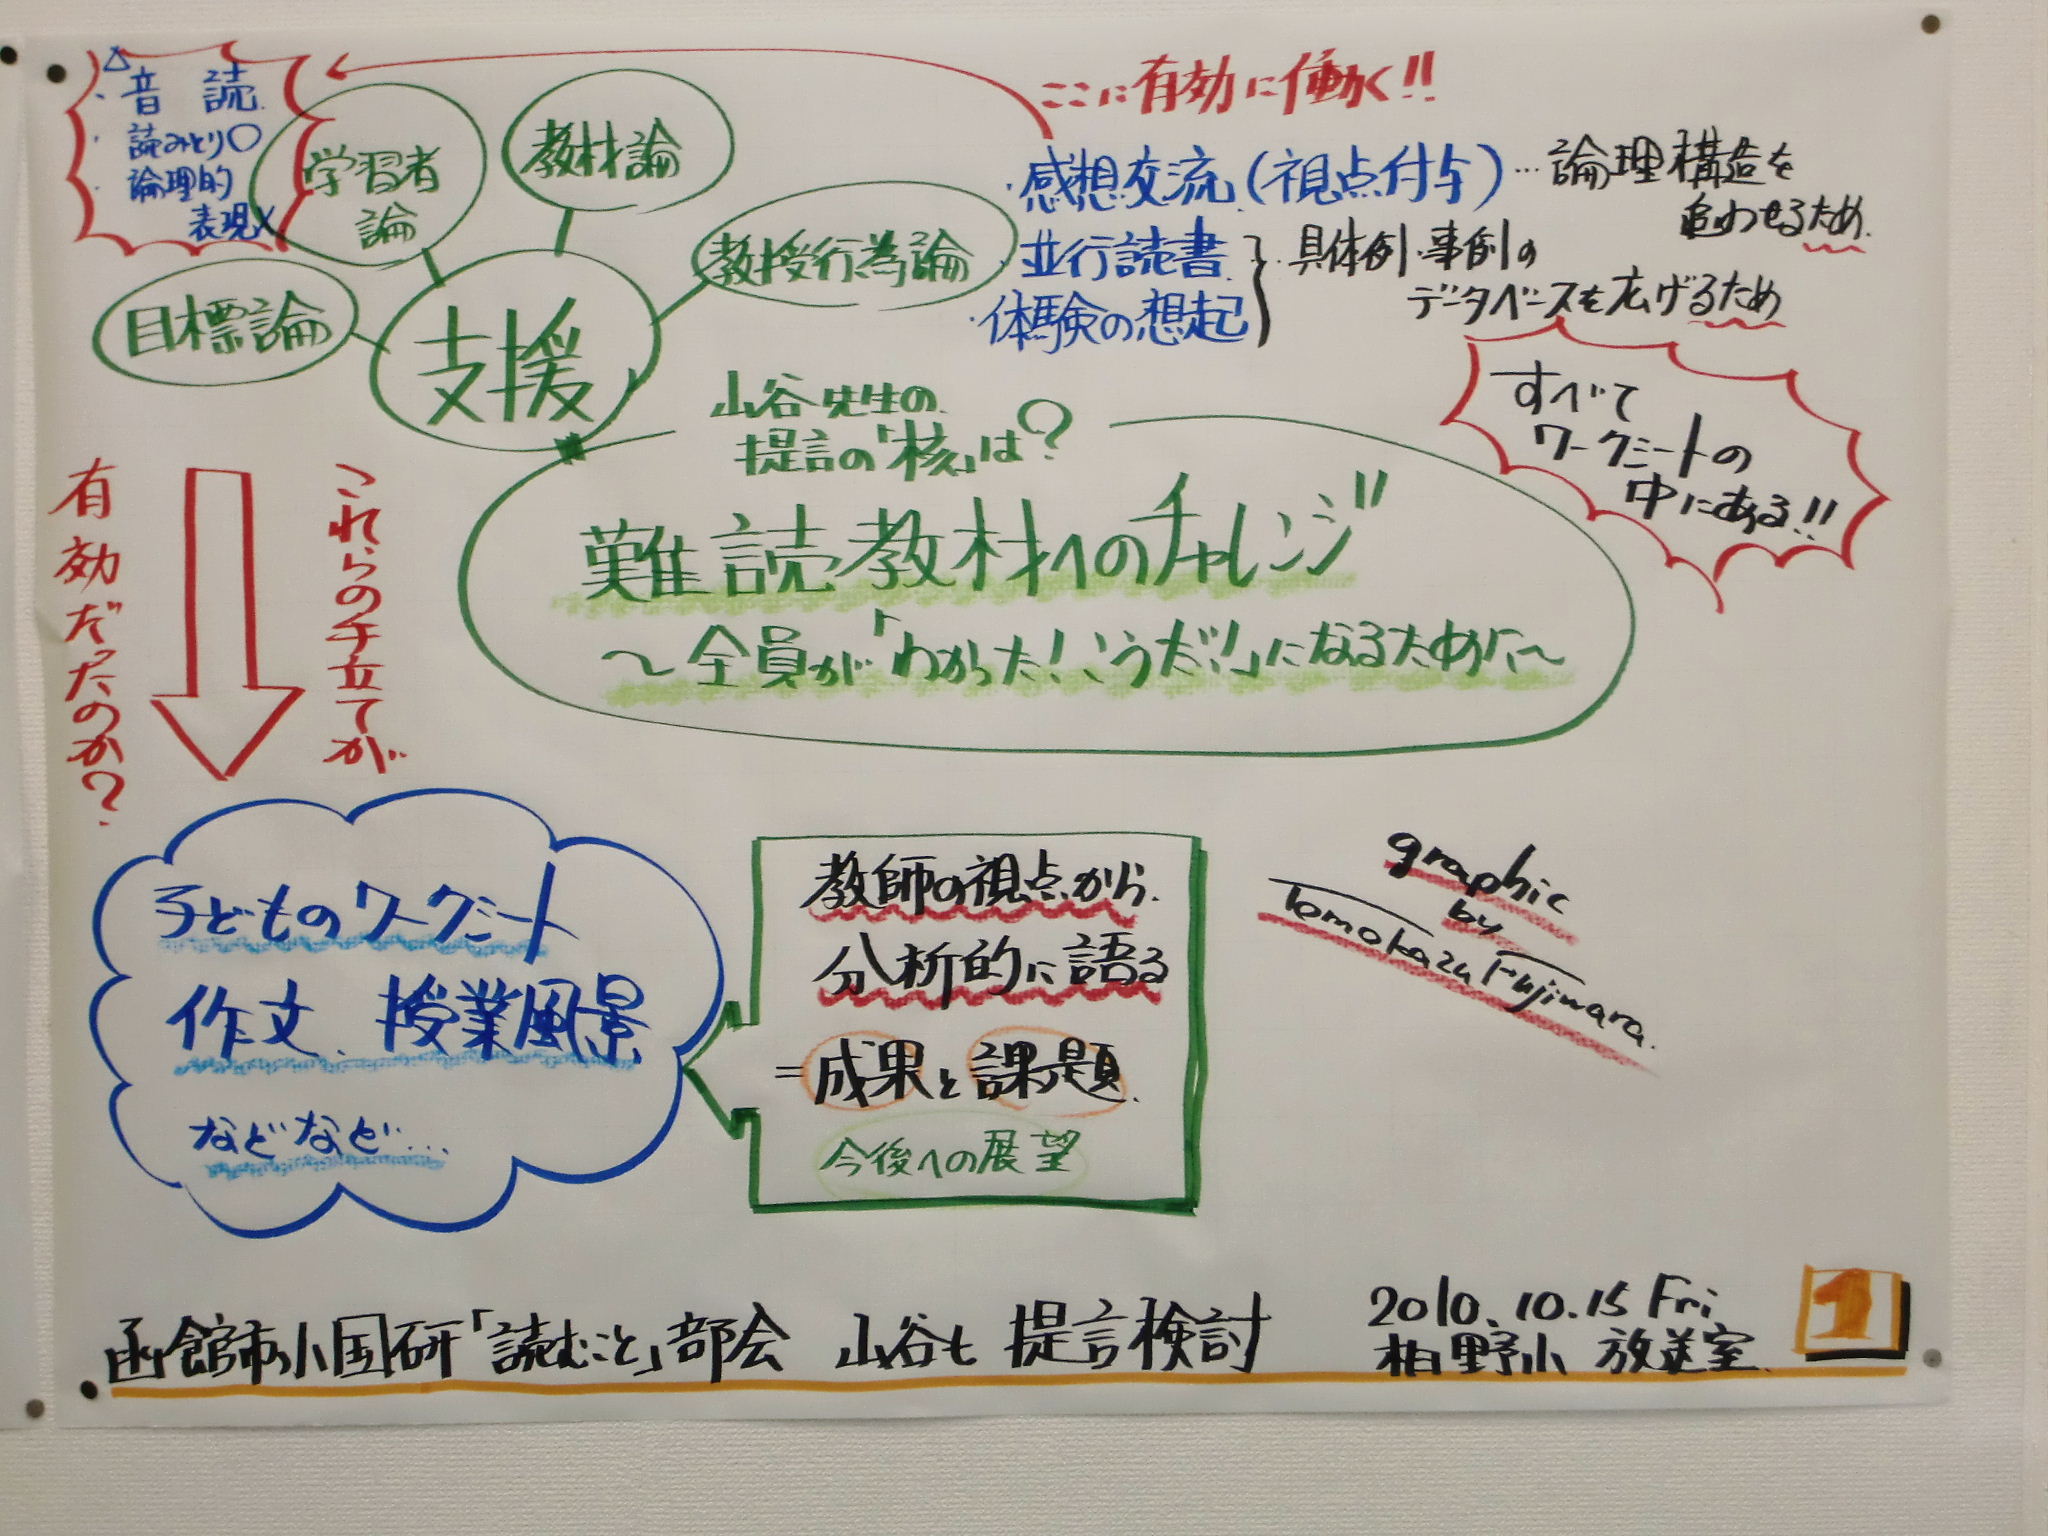 △
・音読
・読みとり○
・論理的
表現×
学習者
論
教材論
教授行為論
目標論
支援
ここに有効に働く!!
・感想交流(視点付与)…論理構造を
追わせるため
・並行読書
・体験の想起
具体例・事例の
データベースを広げるため
すべて
ワークシートの
中にある!!
山谷先生の
提言の「核」は?
難読教材へのチャレンジ
〜全員が「わかった!そうだ!」になるために〜
これらの手立てが
有効だったのか?
子どものワークシート
作文、授業風景
などなど…
教師の視点から
分析的に語る
=成果と課題
今後への展望
graphic
by
Tomokazu Fujiwara.
函館市小国研「読むこと」部会 山谷t 提言検討
2010.10.15 Fri
柏野小 放送室
1